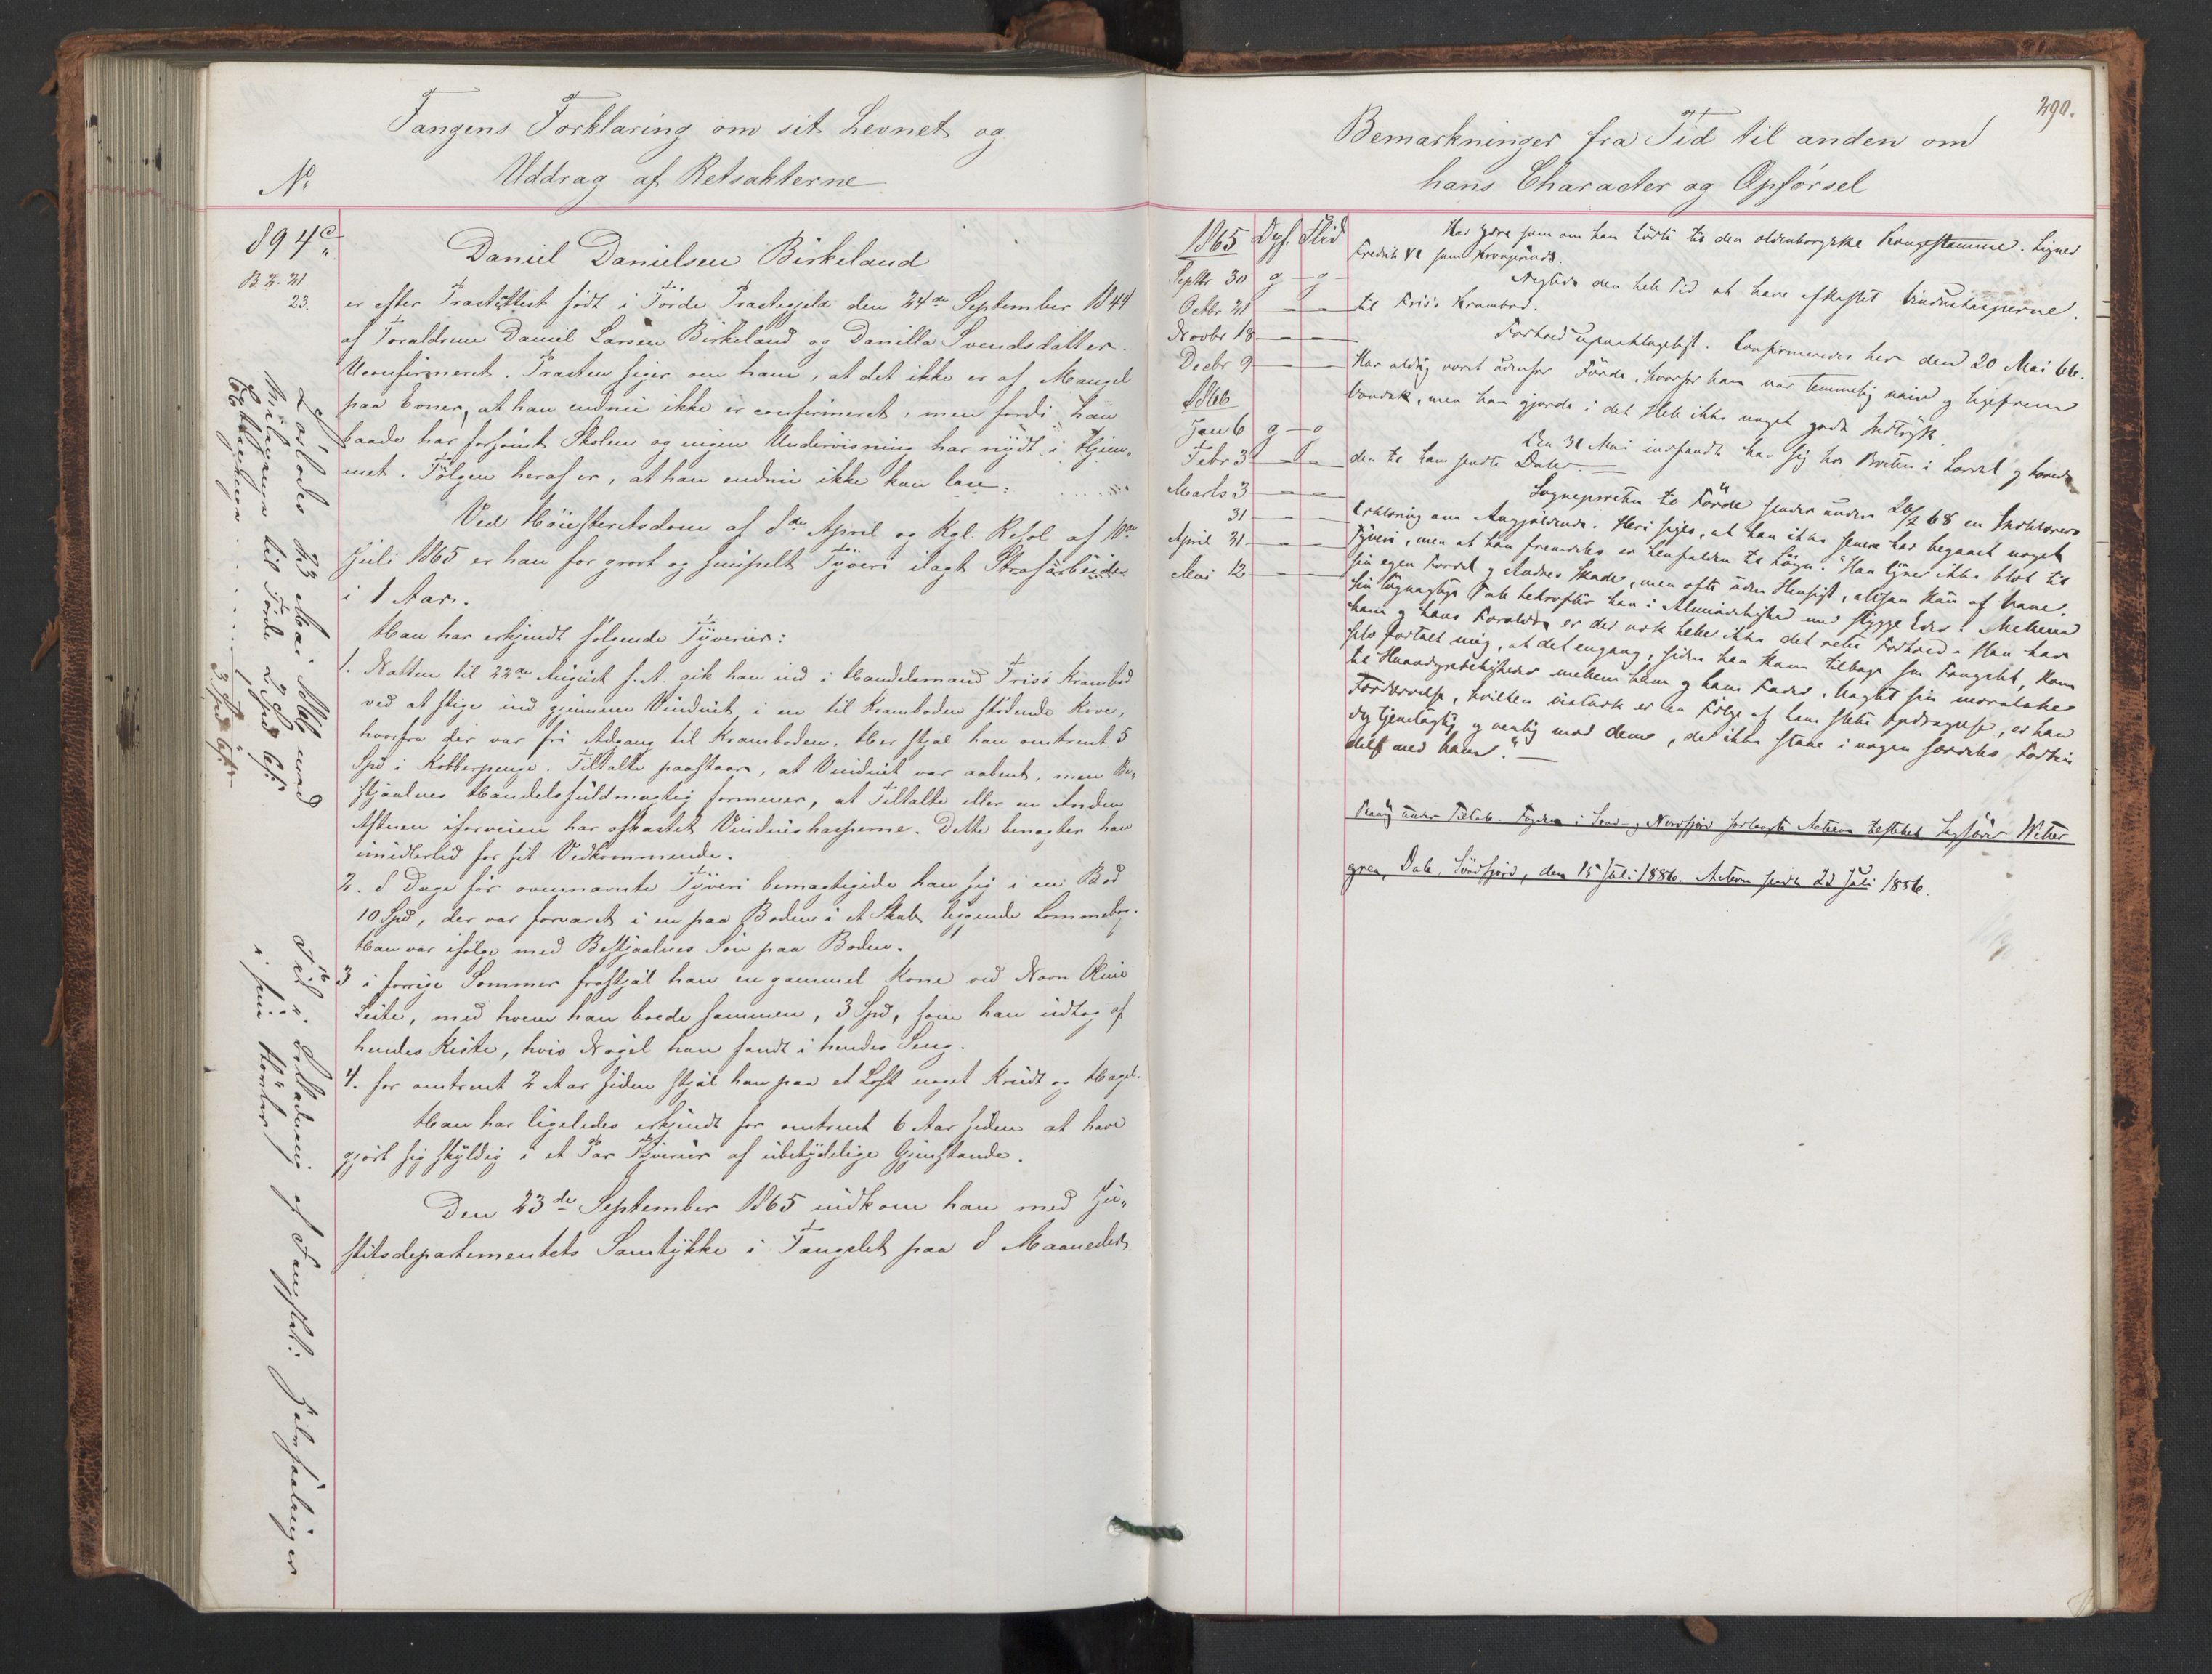 Fangens Forklaring om sit Levnet og
Uddrag af Retsakterne
No
894c
B 2. 21
23.
Daniel Danielsen Birkeland
er efter Præsteattest født i Førde Præstegjeld den 24de September 1844
af Forældrene Daniel Larsen Birkeland og Danilla Svendsdatter.
Uconfirmeret. Præsten siger om ham, at det ikke er af Mangel
paa Evner, at han endnu ikke er confirmeret, men fordi han
baade har forsømt Skolen og ingen Undervisning har nydt i Hjem-
met. Følgen heraf er, at han endnu ikke kan læse.
Ved Høiesteretsdom af 8de April og Kgl. Resol af 10de
Juli 1865 er han for grovt og simpelt Tyveri ilagt Strafarbeide
i 1 Aar.
Han har erkjendt følgende Tyverier:
1. Natten til 22de August f. A. gik han ind i Handelsmand Friis Krambod
ved at stige ind gjennem Vinduet i en til Kramboden stødende Kove,
hvorfra der var fri Adgang til Kramboden. Her stjal han omtrent 5
Spd i Kobberpenge. Tiltalte paastaar, at Vinduet var aabent, men Be-
stjaalnes Handelsfuldmægtig formener, at Tiltalte eller en Anden
Aftenen iforveien har afkastet Vindueshasperne. Dette benægter han
imidlertid for sit Vedkommende.
2. 8 Dage før ovennævnte Tyveri bemægtigede han sig i en Bod
10 Spd, der var forvaret i en paa Boden i et Skab liggende Lommebog.
Han var ifølge med Bestjaalnes Søn paa Boden.
3 i forrige Sommer frastjal han en gammel Kone ved Navn Oline
Leite, med hvem han boede sammen, 3 Spd, som han udtog af
hendes Kiste, hvis Nøgel han fandt i hendes Seng.
4. for omtrent 2 Aar siden stjal han paa et Loft noget Krudt og Hagel.
Han har ligeledes erkjendt for omtrent 6 Aar siden at have
gjort sig skyldig i et Par Tyverier af ubetydelige Gjenstande.
Den 23de September 1865 indkom han med Ju-
stitsdepartementets Samtykke i Fængslet paa 8 Maaneder
Loslødes 23 Mai Mbl med
Milepenge til Førde 2 Spd 6
3 Spd 6
af Fængslet:
290.
Bemærkninger fra Tid til anden om
hans Character og Opførsel
1865 Dygt. Flid
Septbr 30 g - g
Octbr 21 - -
Novbr 18 - -
Decbr 9 - -
1866
Jan 6 g - g
Febr 3 - -
Marts 3 - -
31 - -
April 21 - -
Mai 12 - -
Har Ydre som om han hørte til den oldenborgske Kongestamme. Ligner
Fredrik VI som Kronprinds.
Negtede den hele Tid at have afkastet Vindushasperne
til Friis's Krambod.
Forhold upaaklageligt. Confirmeredes her den 20 Mai 66.
Har aldrig været udenfor Førde, hvorfor han var temmelig naiv og ligefrem
bondsk, men han gjorde i det Hele ikke noget godt Indtryk.
Den 31 Mai indfandt han sig hos Præsten i
den til ham sendte
Sognepresten til Førde sender under 26/2 68 en
Erklæring om Angjældende. Heri siges, at han ikke senere har begaaet noget
Tyveri, men at han fremdeles er henfalden til Løgn. "Han lyver ikke blot til
sin egen Fordel og Andres Skade, men ofte uden Hensigt, altsaa kun af Vane.
Sin løgnagtige Tale bekræfter han i Almindelighed med stygge Eder. Mellem
ham og hans Forældre er der nok heller ikke det rette Forhold. Han har
selv fortalt mig, at det engang, siden han kom tilbage fra Fængslet, kom
til Haandgribeligheder mellem ham og hans Fader. Uagtet sin moralske
Fordærvelse, hvilken vistnok er en Følge af hans slette Opdragelse, er han
dog tjenstagtig og venlig mod dem, der ikke staae i nogen særdeles Forbin
delse med ham." —
Paany under Tiltale. Fogden i Sønd- og Nordfjord forlangte Acterne tilstillet Sagfører Wetter
gren, Dale, Søndfjord, den 15 Juli 1886. Acterne sendt 22 Juli 1886.